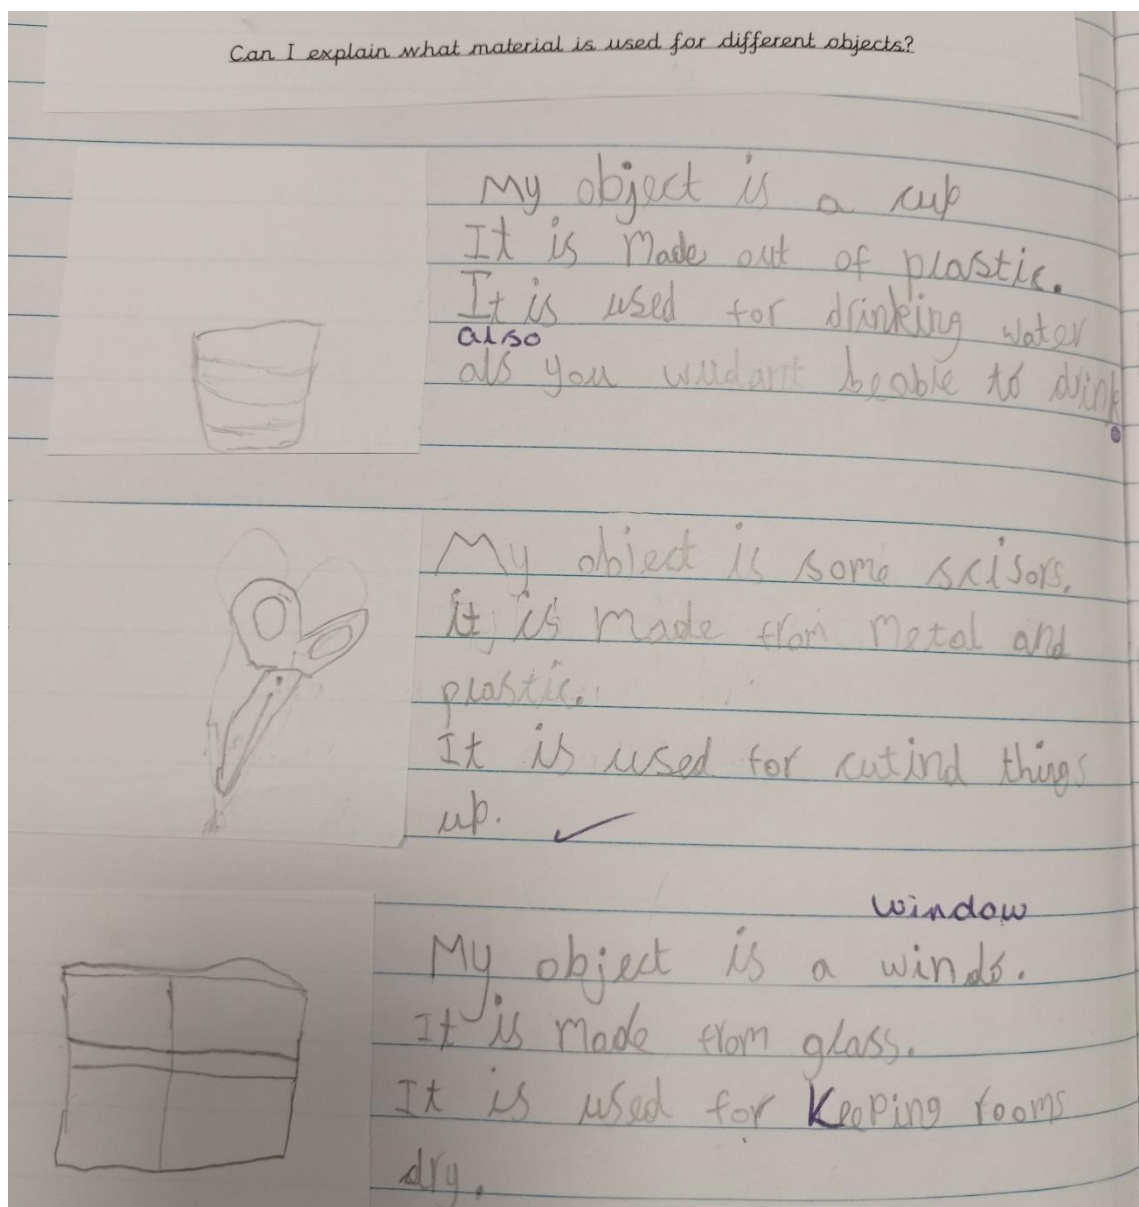 Can I explain what material is used for different objects?
My object is a cup
It is made out of plastic.
It is used for drinking water
also
als you wudant beable to drink.
My object is some scisors.
it is made from metal and
plastic.
It is used for cutind things
up.
window
My object is a windo.
It is made from glass.
It is used for Keeping rooms
dry.